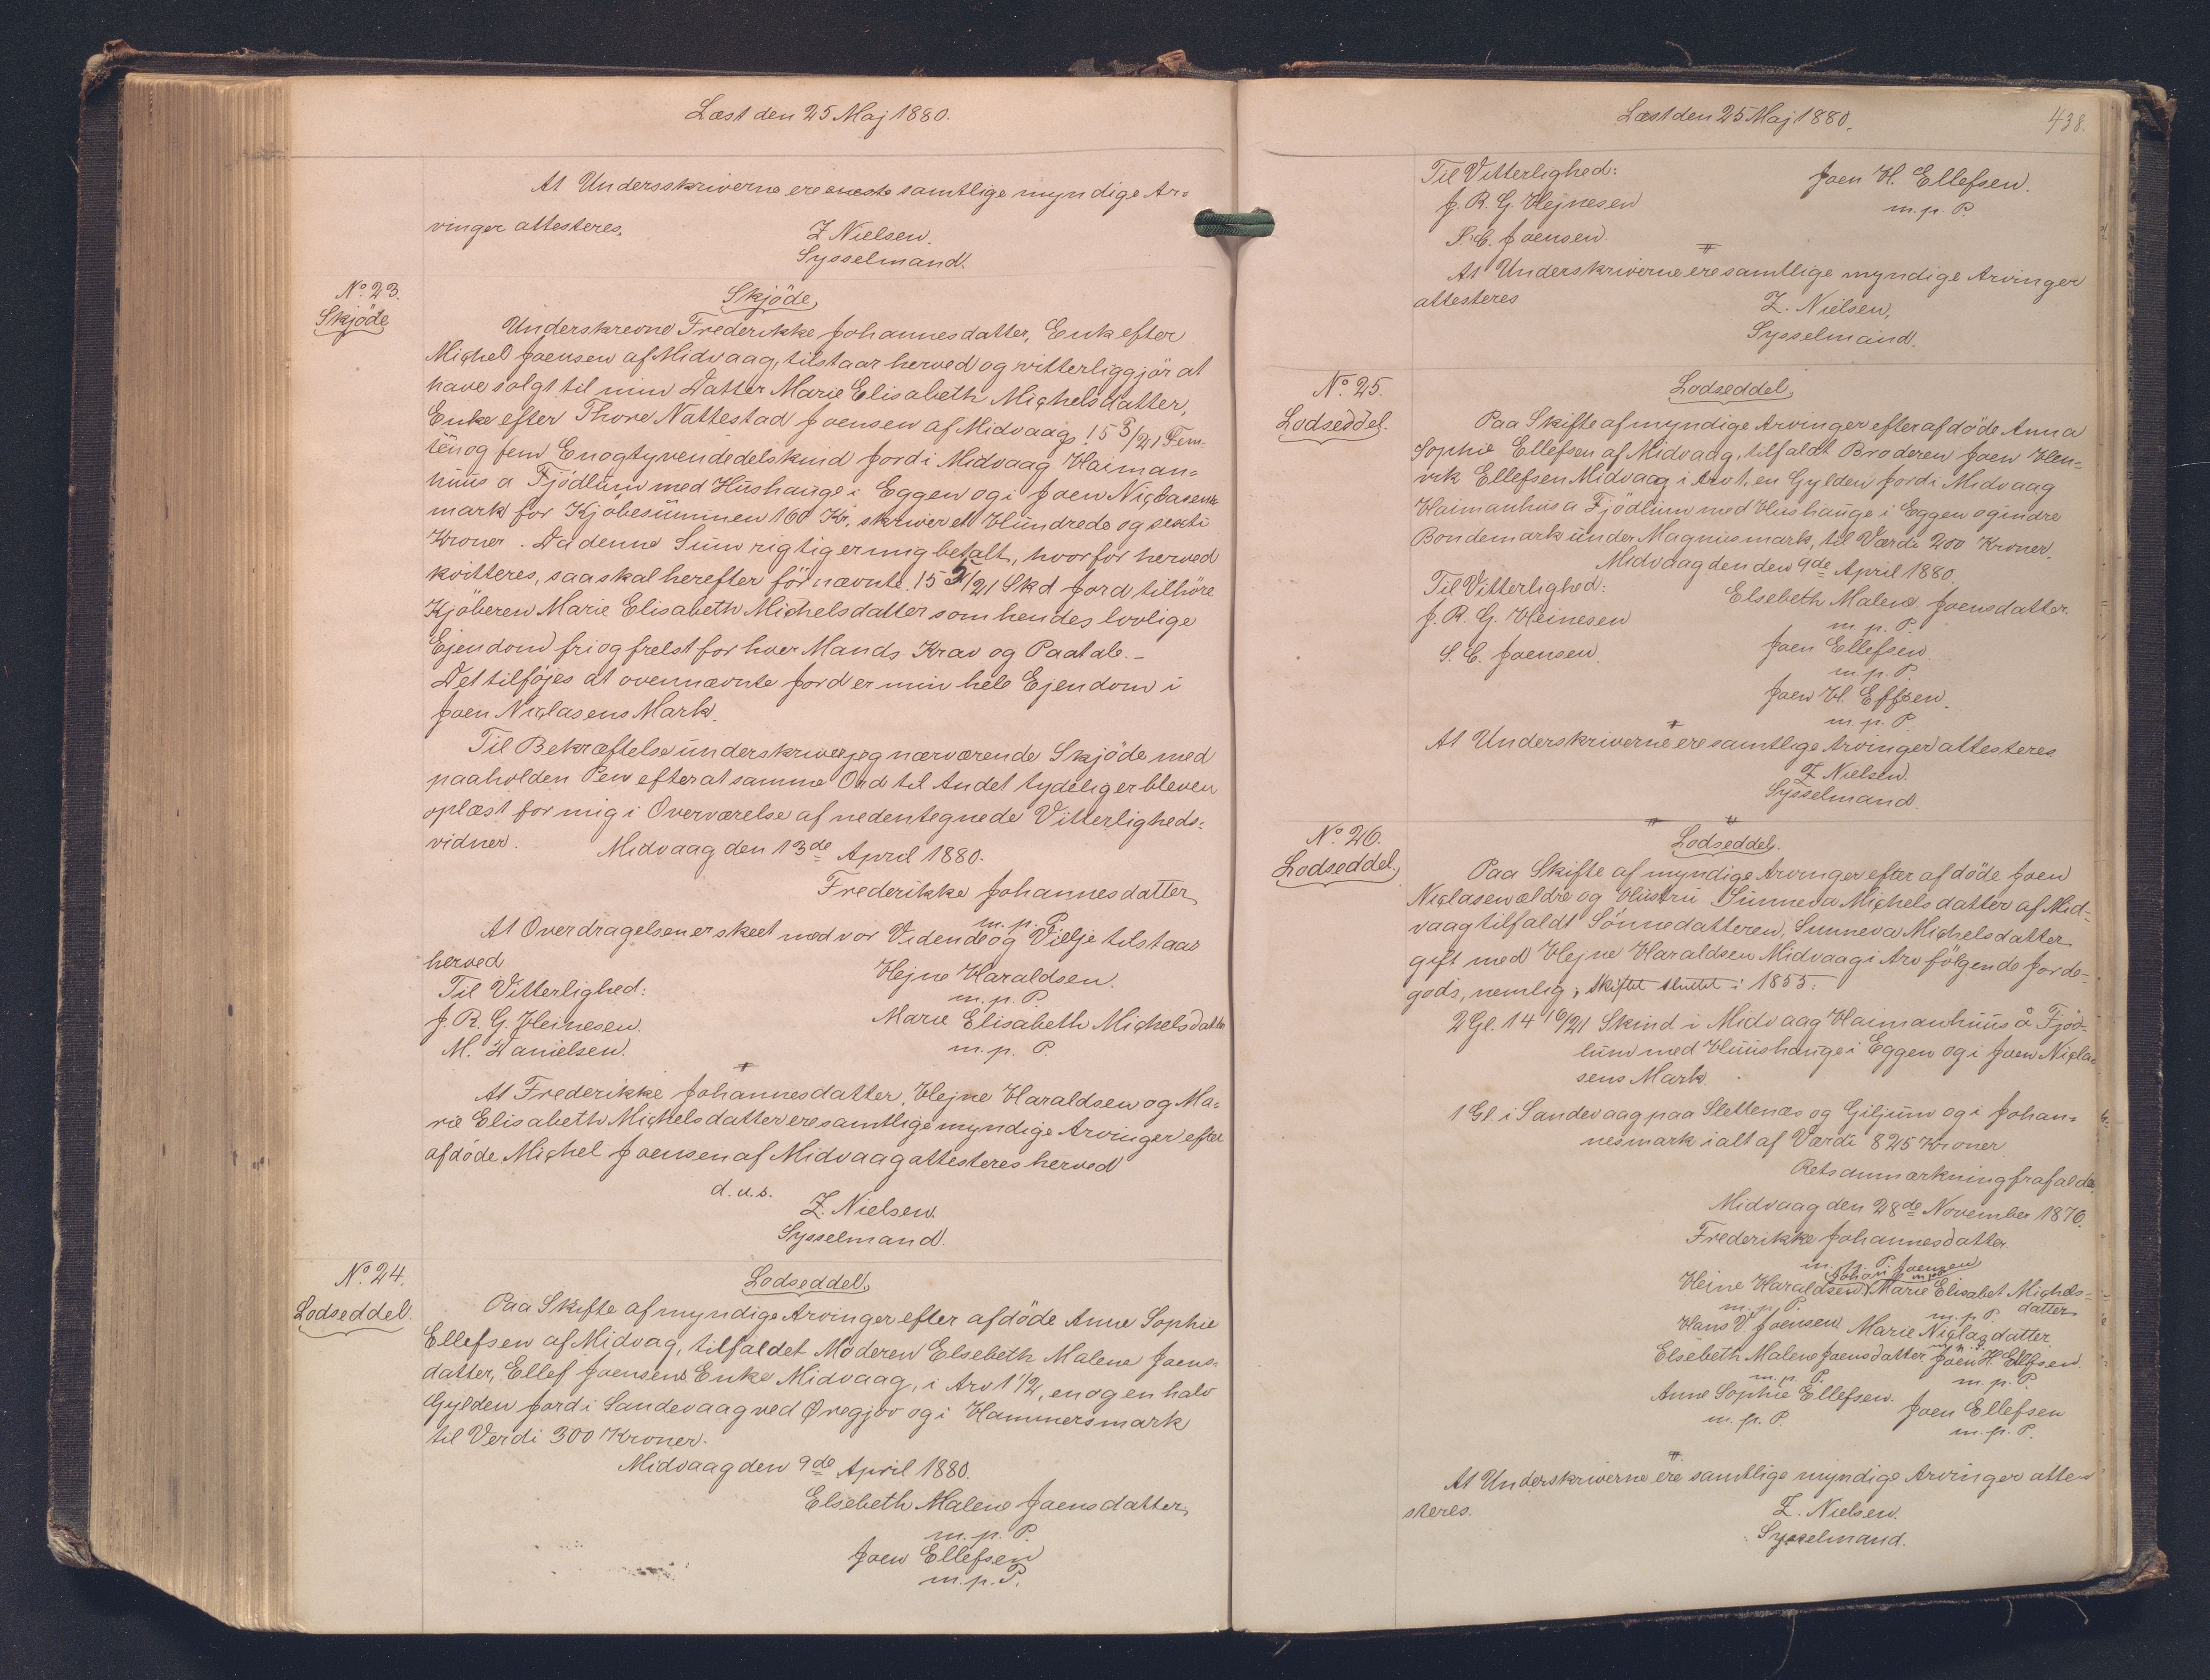 Læst den 25 Maj 1880.
At Undersskriverne ere eneste samtlige myndige Ar-
vinger attesteres.
Z Nielsen.
Sysselmand.
No. 23.
Skjöde
Skjöde,
Underskrevne Frederikke Johannesdatter, Enk efter
Michel Joensen af Midvaag, tilstaar herved og vitterliggjör at
have solgt til min Datter Marie Elisabeth Michelsdatter,
Enke efter Thore Nattestad Joensen af Midvaag, 15 5/21 Fem-
ten og fem Enogtyvendedelskind Jord i Midvaag Haiman-
huus a Fjödlum med Hushauge i Eggen og i Joen Niclasens
mark for Kjöbesummen 160 Kr. skriver et Hundrede og sexti
Kroner. Da denne Sum rigtig er mig betalt, hvorfor herved
kvitteres, saa skal herefter förnævnte 15 5/21 Skd Jord tilhöre
Kjöberen Marie Elisabeth Michelsdatter som hendes lovlige
Ejendom fri og frelst for hver Mands Krav og Paatale. -
Det tilföjes at ovennævnte Jord er min hele Ejendom i
Joen Niclasens Mark.
Til Bekræftelse underskriver jeg nærværende Skjöde med
paaholden Pen efter at samme Ord til Andet tydelig er bleven
oplæst for mig i Overværelse af nedentegnede Vitterligheds-
vidner.
Midvaag den 13de April 1880.
Frederikke Johannesdatter
m. p. P.
At Overdragelsen er skeet med vor Vidende og Vilje tilstaar
herved
Hejne Haraldsen.
m. p. P.
Til Vitterlighed:
J. R. G. Heinesen.
Marie Elisabeth Michelsdatter
m. p. P.
M. Danielsen.
At Frederikke Johannesdatter, Hejne Haraldsen og Ma-
rie Elisabeth Michelsdatter ere samtlige myndige Arvinger efter
afdöde Michel Joensen af Midvaag attesteres herved
d. u. s.
Z. Nielsen.
Sysselmand.
No. 24.
Lodseddel.
Lodseddel.
Paa Skifte af myndige Arvinger efter afdöde Anne Sophie
Ellefsen af Midvag, tilfaldet Moderen Elsebeth Malene Joens-
datter, Ellef Joensens Enke Midvaag, i Arv 1 1/2, en og en halv
Gylden Jord i Sandevaag ved Øregjov og i Hammersmark
til Verdi 300 Kroner.
Midvaag den 9de April 1880.
Elsebeth Malene Joensdatter
m. p. P.
Joen Ellefsen
m. p. P.
Læst den 25 Maj 1880.
438.
Til Vitterlighed:
Joen H. Ellefsen.
m. p. P.
J. R. G. Hejnesen
S. C. Joensen.
At Underskriverne ere samtlige myndige Arvinger
attesteres
Z. Nielsen,
Sysselmand.
No. 25.
Lodseddel.
Lodseddel,
Paa Skifte af myndige Arvinger efter afdöde Anna
Sophie Ellefsen af Midvaag, tilfaldt Broderen Joen Hen-
rik Ellefsen Midvaag i Arv 1, en Gylden Jord i Midvaag
Haimanhus a Fjödlum med Hushauge i Eggen og indre
Bondemark under Magnusmark, til Værdi 200 Kroner.
Midvaag den den 9de April 1880.
Til Vitterlighed:
Elsebeth Malene Joensdatter.
m. p. P.
J. R. G. Heinesen
Joen Ellefsen
m. p. P.
S. C. Joensen.
Joen H. Effsen.
m. p. P.
At Underskriverne ere samtlige Arvinger attesteres
Z Nielsen.
Sysselmand.
No. 26.
Lodseddel.
Lodseddel.
Paa Skifte af myndige Arvinger efter afdöde Joen
Niclasen ældre og Hustru Sunneva Michelsdatter af Mid-
vaag tilfaldt Sönnedatteren, Sunneva Michelsdatter
gift med Hejne Haraldsen Midvaag i Arv fölgende Jorde-
gods, nemlig; Skiftet sluttet i 1855:
2 Gl. 14 16/21 Skind i Midvaag Haimanhuus å Fjöd-
lum med Huushauge i Eggen og i Joen Nicla-
sens Mark.
1 Gl. i Sandevaag paa Slettenæs og Giljum og i Johan-
nesmark i alt af Værdi 825 Kroner
Retsanmærkning frafaldes.
Midvaag den 28de November 1876.
Frederikke Johannesdatter.
m. p. P.
Johan Joensen
m p
Heine Haraldsen Marie Elisabet Michels-
datter
m. p. P.
m. p. P.
Hans V. Joensen Marie Niclasdatter
m. p. P.
Elsebeth Malene Joensdatter Joen H. Ellefsen.
m. p. P.
m. p. P.
Anne Sophie Ellefsen.
m. p. P.
Joen Ellefsen
m. p. P.
At Underskriverne ere samtlige myndige Arvinger atte-
steres.
Z. Nielsen.
Sysselmand.